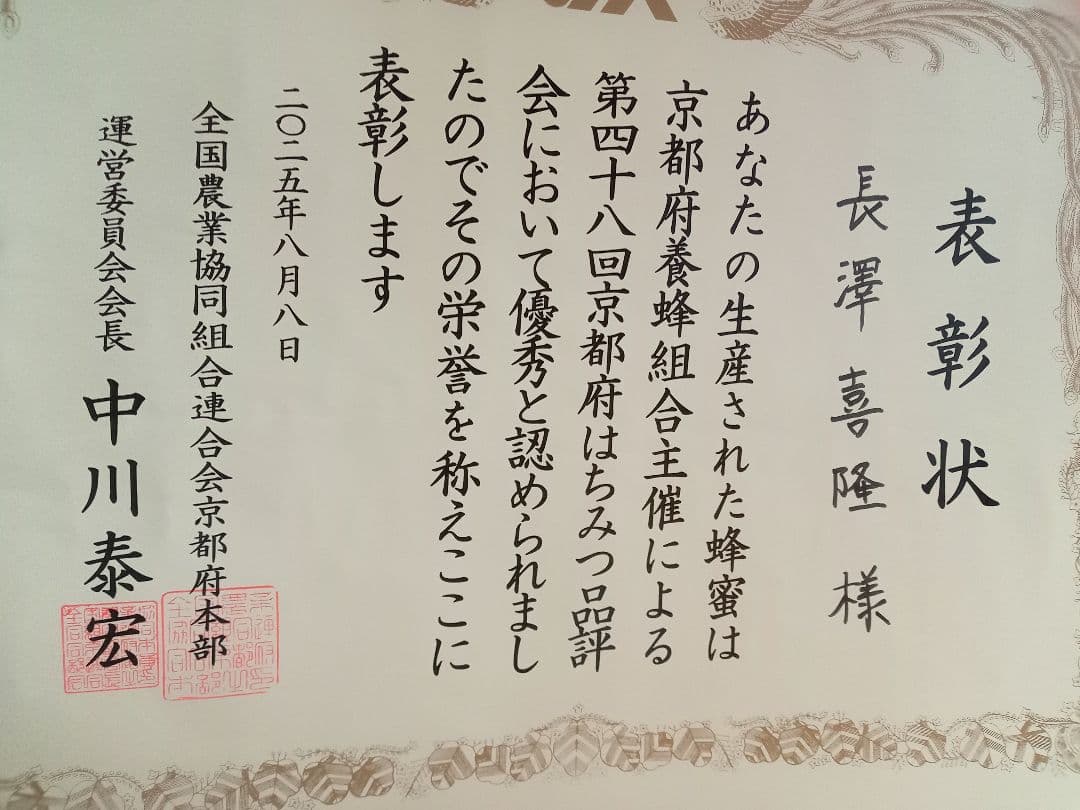 表彰状
長澤喜隆様
あなたの生産された蜂蜜は
京都府養蜂組合主催による
第四十八回京都府はちみつ品評
会において優秀と認められまし
たのでその栄誉を称えここに
表彰します
二〇二五年八月八日
全国農業協同組合連合会京都府本部
運営委員会会長 中川泰宏